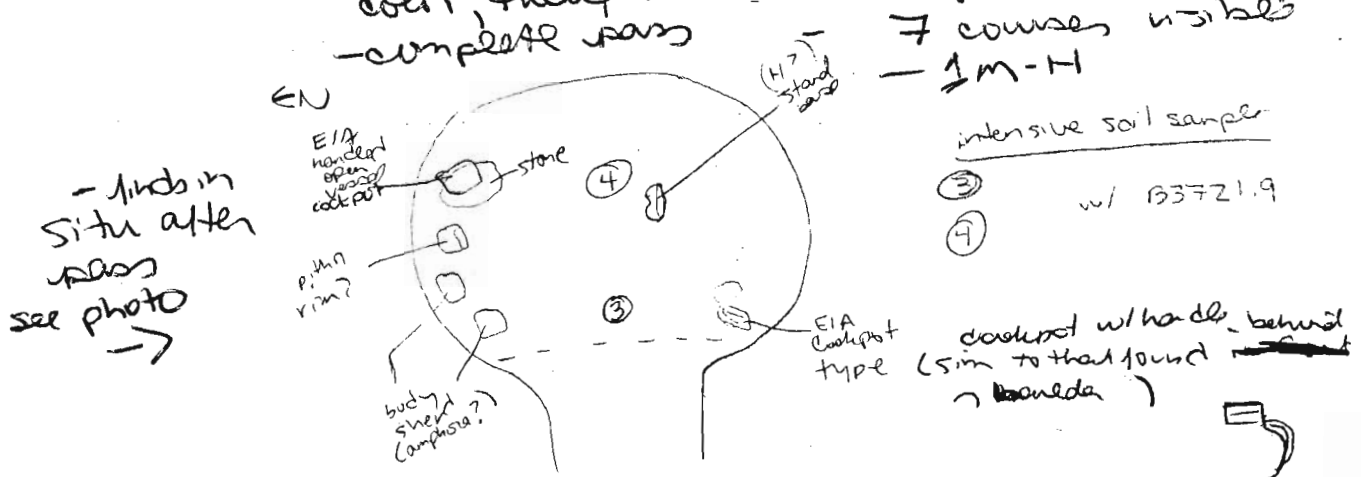 -complete pass
7 courses visible
- 1m-H
EN
(H?)
stand
base
E/A
handed
open
vessel
cookpot
stone
4
intensive soil sample
3
w/ B3721.9
4
- finds in
situ after
pass
see photo
→
pithn
rim?
3
E/A
cookpot
type
cookpot w/handle behind
(sim to that found
boulder )
body
sherd
(amphora?)